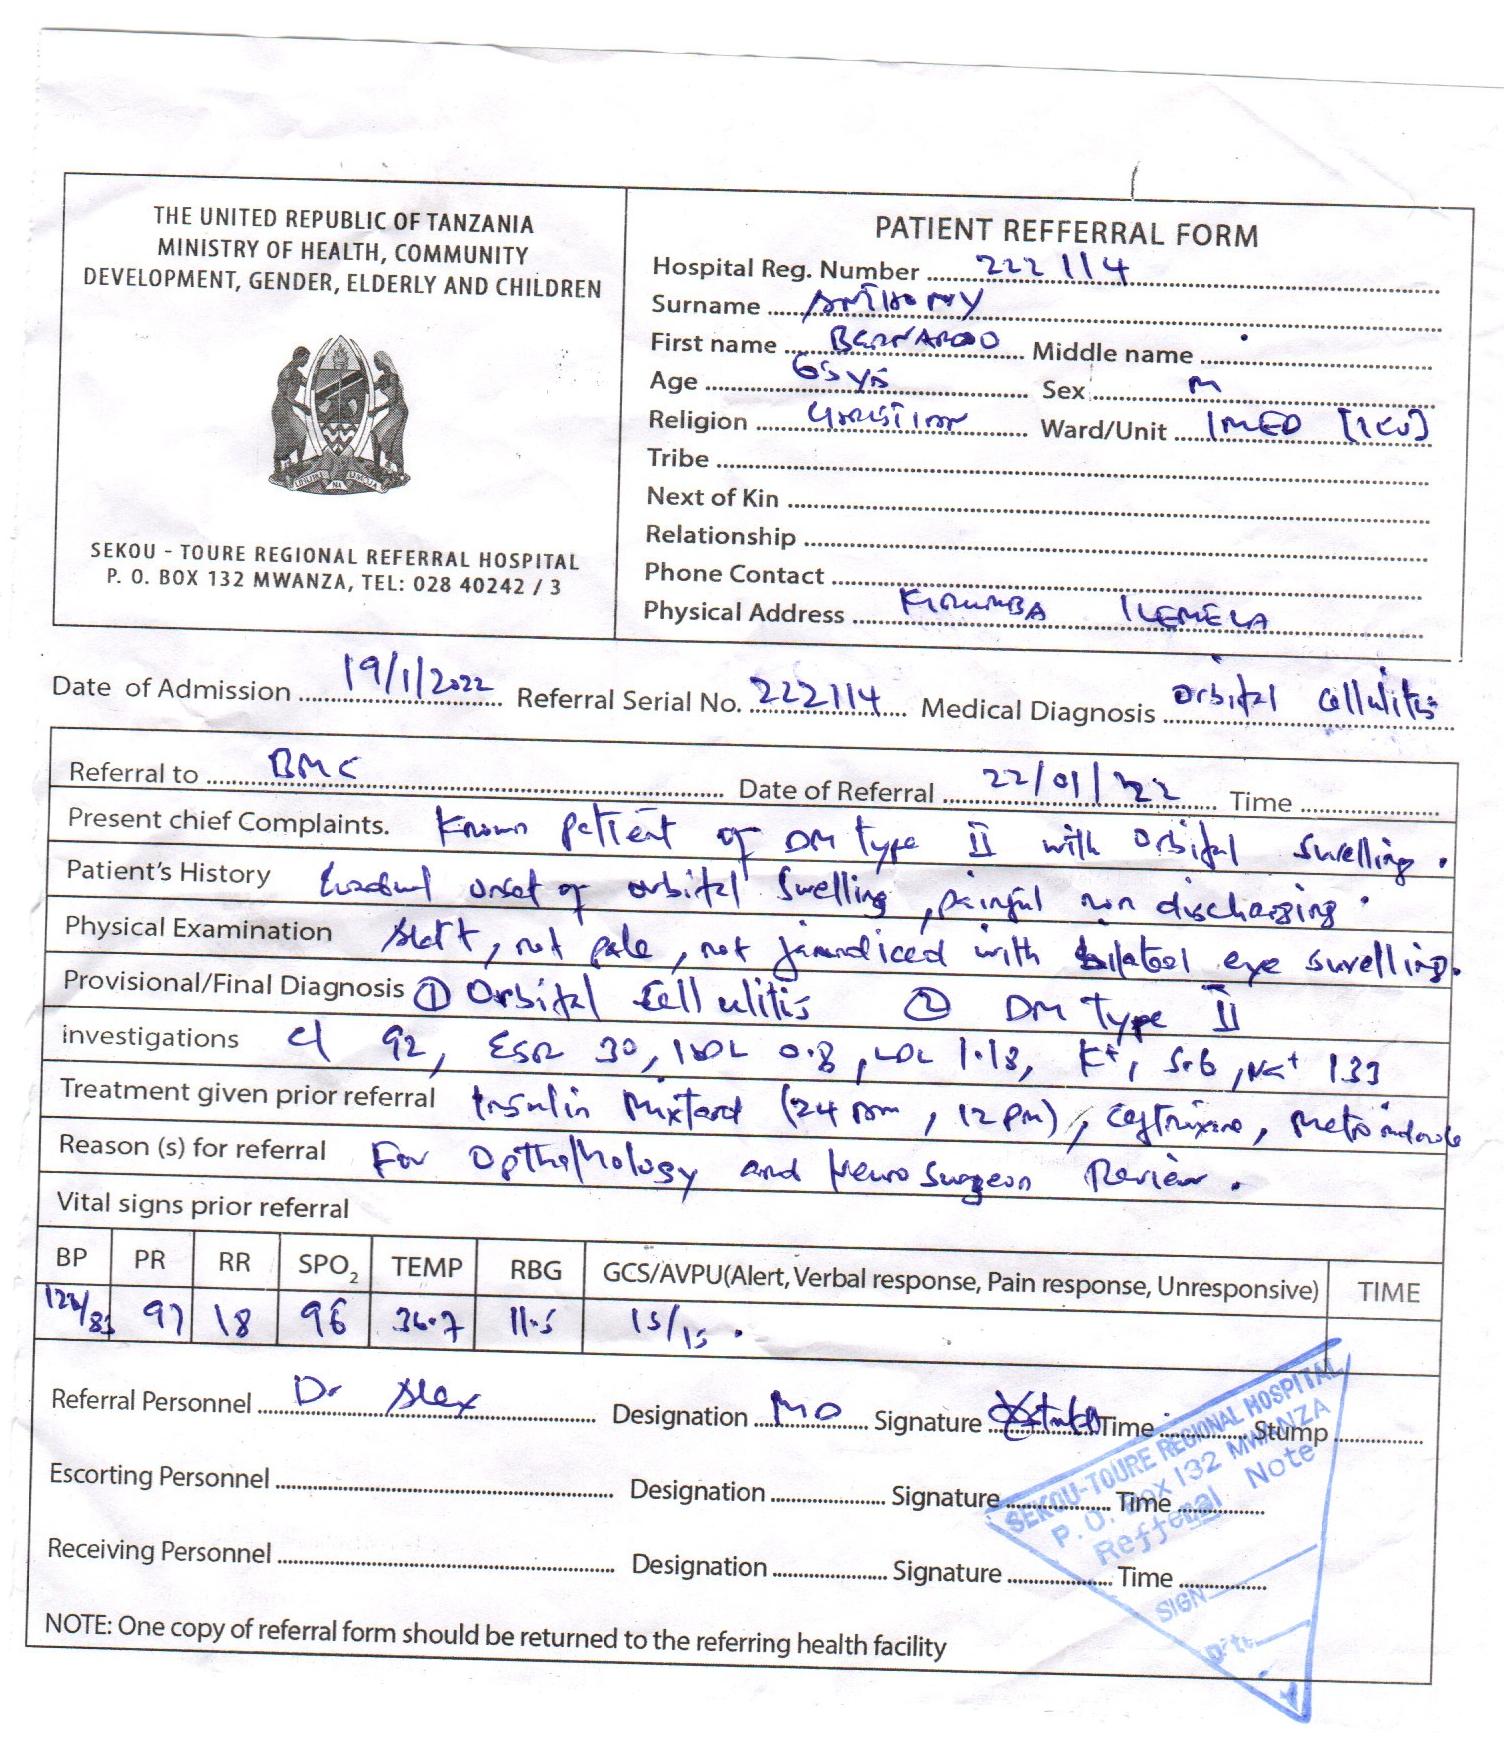 THE UNITED REPUBLIC OF TANZANIA
MINISTRY OF HEALTH, COMMUNITY
DEVELOPMENT, GENDER, ELDERLY AND CHILDREN
SEKOU - TOURE REGIONAL REFERRAL HOSPITAL
P. O. BOX 132 MWANZA, TEL: 028 40242 / 3
PATIENT REFFERRAL FORM
Hospital Reg. Number 222114
Surname ANTHONY
First name BERNARDO Middle name
Age 65 yrs Sex M
Religion CHRISTIAN Ward/Unit IMED [ICU]
Tribe
Next of Kin
Relationship
Phone Contact
Physical Address KIRUMBA ILEMELA
Date of Admission 19/1/2022 Referral Serial No. 222114 Medical Diagnosis Orbital Cellulitis
Referral to BMC Date of Referral 22/01/22 Time
Present chief Complaints. Known patient of DM type II with orbital swelling.
Patient's History Gradual onset of orbital swelling, painful non discharging.
Physical Examination Alert, not pale, not jaundiced with bilateral eye swelling.
Provisional/Final Diagnosis ① Orbital Cellulitis ② DM Type II
Investigations Cl 92, ESR 30, HDL 0.8, LDL 1.18, K+, 5.6, Na+ 133
Treatment given prior referral Insulin Mixtard (24 am, 12 pm), Ceftrixone,
Reason (s) for referral For Opthalmology and Neuro Surgeon Review.
Vital signs prior referral
BP PR RR SPO2 TEMP RBG GCS/AVPU(Alert, Verbal response, Pain response, Unresponsive) TIME
122/83 97 18 96 36.7 11.5 15/15.
Referral Personnel Dr Alex Designation MO Signature Time Stump
Escorting Personnel Designation Signature Time
Receiving Personnel Designation Signature Time
NOTE: One copy of referral form should be returned to the referring health facility
SEKOU-TOURE REGIONAL HOSPITAL
P. O. Box 132 MWANZA
Refferal Note
SIGN
Date